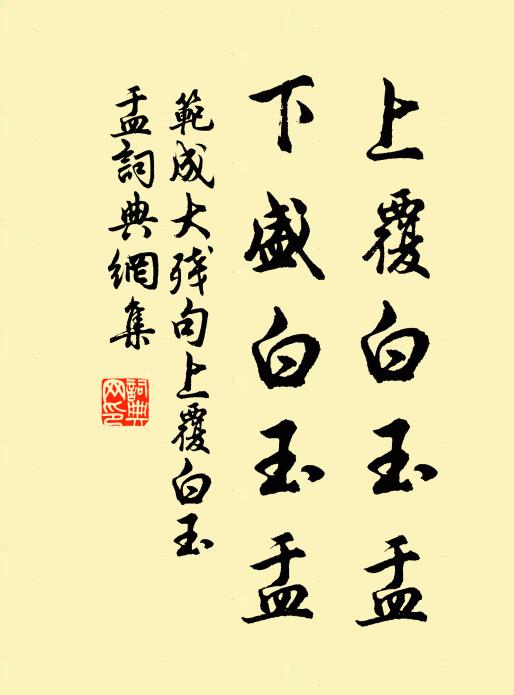 上覆白玉盂
下盛白玉盂
範成大殘句上覆白玉
盂詞典網集
詞典
网印